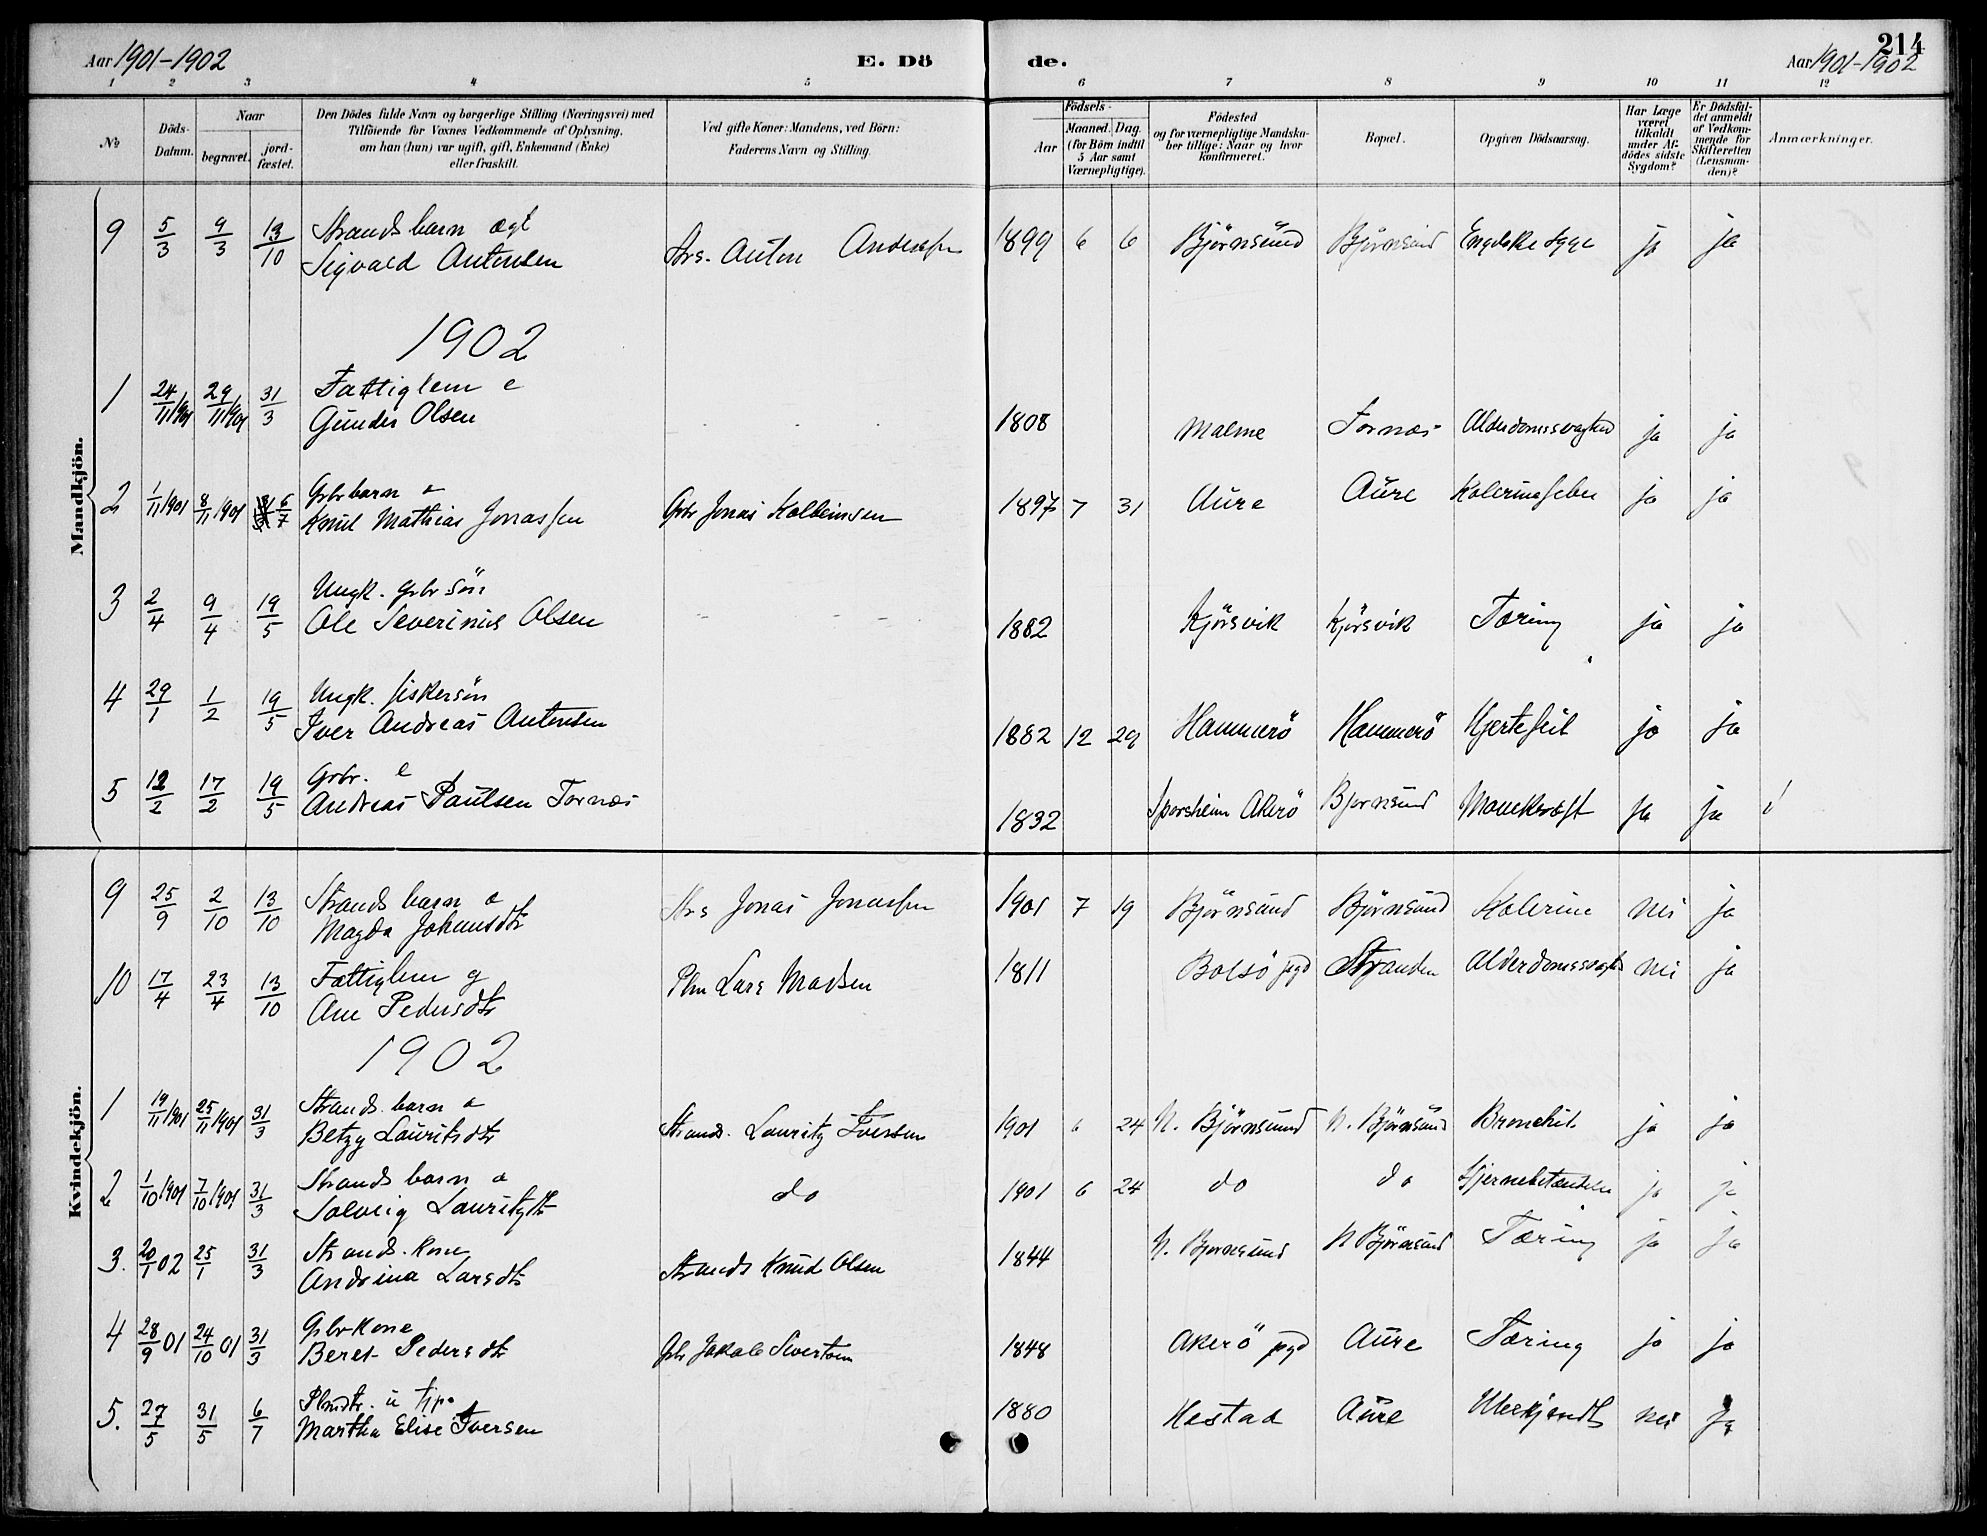 Aar 1901-1902
E. Dö
de.
214
Aar 1901-1902
1 2 3 4 5 6 7 8 9 10 11 12
No
Döds-Datum.
Naar
begravet.
jordfæstet.
Den Dödes fulde Navn og borgerlige Stilling (Næringsvei) med
Tilföiende for Voxnes Vedkommende af Oplysning,
om han (hun) var ugift, gift, Enkemand (Enke)
eller fraskilt.
Ved gifte Koner: Mandens, ved Börn:
Faderens Navn og Stilling.
Födsels-
Aar
Maaned. Dag
(for Börn indtil
5 Aar samt
Værnepligtige).
Födested
og for værnepligtige Mandskaber tillige: Naar og hvor
konfirmeret.
Bopæl.
Opgiven Dödsaarsag.
Har Læge
været
tilkaldt
under Afdödes sidste
Sygdom?
Er Dödsfaldet anmeldt
af Vedkommende for
Skifteretten
(Lensmanden)?
Anmærkninger.
Mandkjön.
9 5/3 9/3 13/10 Strands barn ægt
Sigvald Antonsen Strs. Anton Anderssen 1899 6 6 Björnsund Björnsund Engelske syge ja ja
1902
1 24/11 1901 29/11 1901 31/3 Fattiglem e
Gunder Olsen 1808 Malme Tornæs Alderdomssvaghed ja ja
2 1/11 1901 8/11 1901 6/7 Gbr barn æ
Knut Mathias Jonassen Gbr Jonas Kolbeinsen 1897 7 31 Aure Aure Kolerinefeber ja ja
3 2/4 9/4 19/5 Ungk. gbr sön
Ole Severinus Olsen 1882 Kjörsvik Kjörsvik Tæring ja ja
4 29/1 1/2 19/5 Ungk. fiskersön
Iver Andreas Antonsen 1882 12 29 Hammerö Hammerö Hjertefeil ja ja
5 12/2 17/2 19/5 Gbr. e
Andreas Paulsen Tornæs 1832 Sporsheim Akerö Bjornsund Mavekræft ja ja
Kvindekjön.
9 25/9 2/10 13/10 Strands barn æ
Magda Johansdtr Strs Jonas Jonassen 1901 7 19 Björnsund Björnsund Kolerine nei ja
10 17/4 23/4 13/10 Fattiglem g
Ane Pedersdtr Plm Lars Madsen 1811 Bolsö pgd Stranden Alderdomssvaghed nei ja
1902
1 19/11 1901 25/11 1901 31/3 Strands. barn æ
Betzy Lauritsdtr Strands. Lauritz Iversen 1901 6 24 N. Björnsund N. Björnsund Bronchit ja ja
2 1/10 1901 7/10 1901 31/3 Strands barn æ
Solveig Lauritzdtr do 1901 6 24 do do Hjernebetændelse ja ja
3. 20/1 02 25/1 31/3 Strands. kone
Andrina Larsdtr Strands Knud Olsen 1844 N. Bjornsund N Björnsund Tæring ja ja
4 28/9 01 24/10 01 31/3 Gbrkone
Beret Pedersdtr Gbr Jakob Sivertsen 1848 Akerö pgd Aure Tæring ja ja
5. 27/5 31/5 6/7 Plmdtr. u tjp.
Martha Elise Iversen 1880 Hestad Aure Ubekjendt nei ja